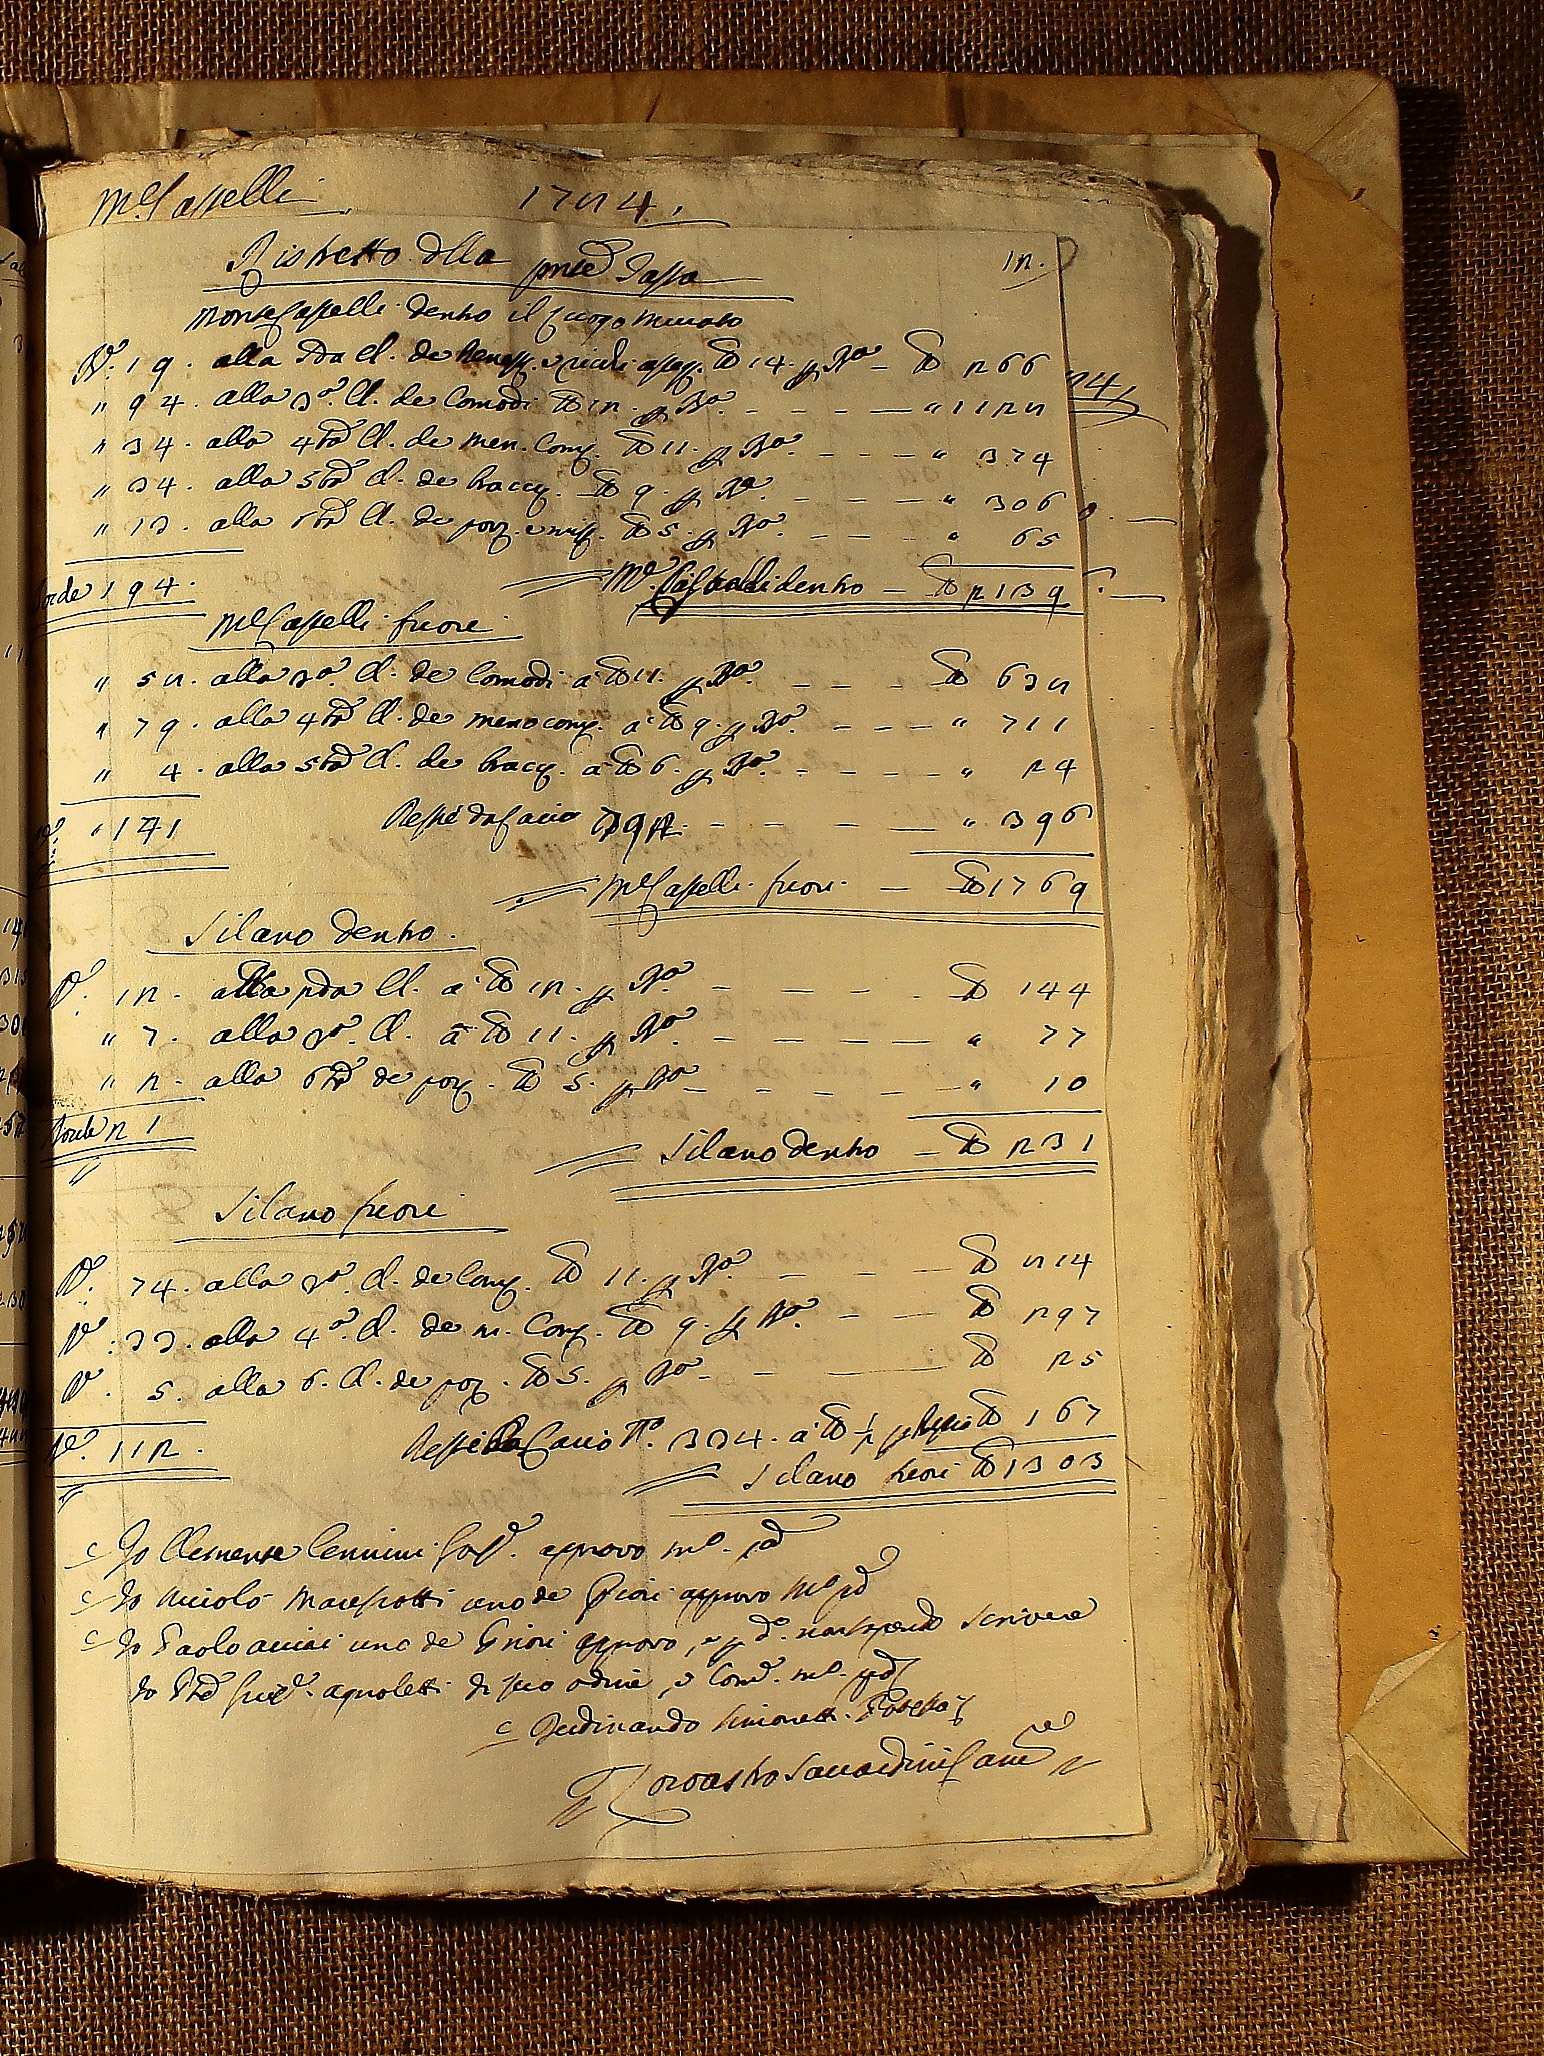 M.e Castelli 1784.
Ristretto dlla pnte Tassa 12.
Monte Castelli dentro il luogo murato
N.o 19. alla 2da Cl. de Benest. £ 14. p N.o — £ 266
" 94. alla 3a. Cl. de Comodi £ 12. p N.o - - - - " 1128
" 34. alla 4ta Cl. de men. Com. £ 11. p N.o - - - " 374
" 34. alla 5ta Cl. de bracc. £ 9. p N.o - - - " 306
" 13. alla 6ta Cl. de pov. e mis. £ 5. p N.o - - - " 65
194. M.e Castelli dentro — £ 2139
M.e Castelli fuori
" 58. alla 3a. Cl. de Comodi a £ 11. p N.o - - - £ 638
" 79. alla 4ta Cl. de meno com. a £ 9. p N.o - - - " 711
" 4. alla 5ta Cl. de bracc. a £ 6. p N.o - - - " 24
" 141 Bestie da Cacio 792. - - - - " 396
M.e Castelli fuori — £ 1769
Silano dentro.
N. 12. alla 2da Cl. a £ 12. p N.o - - - - £ 144
" 7. alla 3a. Cl. a £ 11. p N.o - - - - - " 77
" 2. alla 6ta de pov. £ 5. p N.o - - - - " 10
21 Silano dentro — £ 231
Silano fuori
N.o 74. alla 3a. Cl. de Com. £ 11. p N.o - - - £ 814
N.o 33. alla 4a. Cl. de m. Com. £ 9. p N.o - - £ 297
N. 5. alla 6. Cl. de pov. £ 5. p N.o - - - £ 25
N.o 112. Bestie da Cacio N.o 334. a £ ½ p Bestia £ 167
Silano fuori £ 1303
Io Clemente Cennini Gonf.re approvo m.o pp.a
Io Nicolò Marchotti uno de Priori approvo m.o pp.a
Io Paolo uno de Priori approvo, e p d.o non sapendo scrivere
Io Agnoletti di suo ordine, e Com.e m.o pp.a
Ferdinando Simonetti Potestà
Zoroastro Saccardini Canc.re